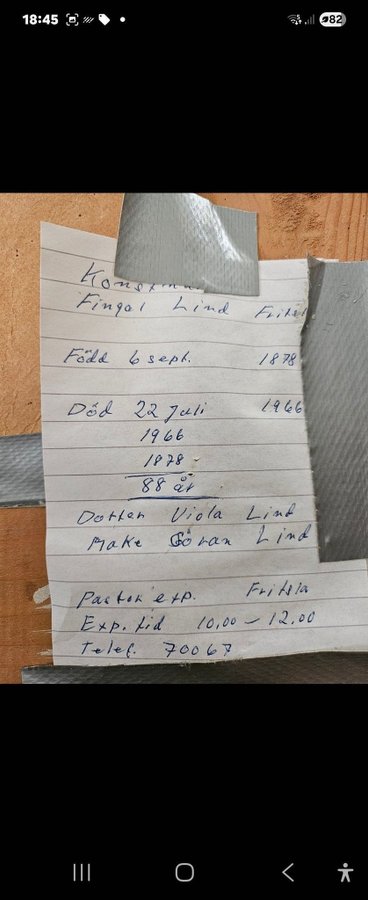 18:45
82
Fingal Lind Fritsl
Född 6 sept. 1878
Död 22 Juli 1966
1966
1878
88 år
Dotter Viola Lind
Make Göran Lind
Pastor exp. Fritsla
Exp. tid 10.00 – 12.00
Telef. 70067